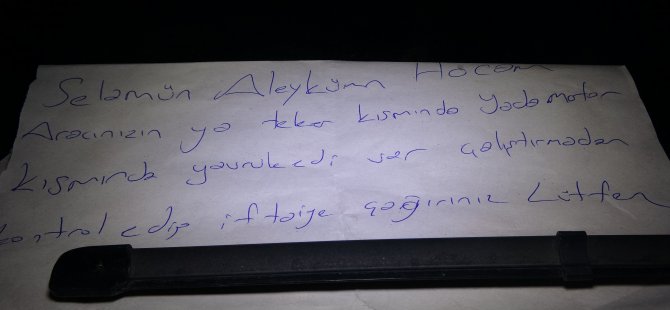 Selamün Aleyküm Hocam
Aracınızın ya teker kısmında yada motor
kısmında yavru kedi var çalıştırmadan
kontrol edip itfaiye çağırınız Lütfen